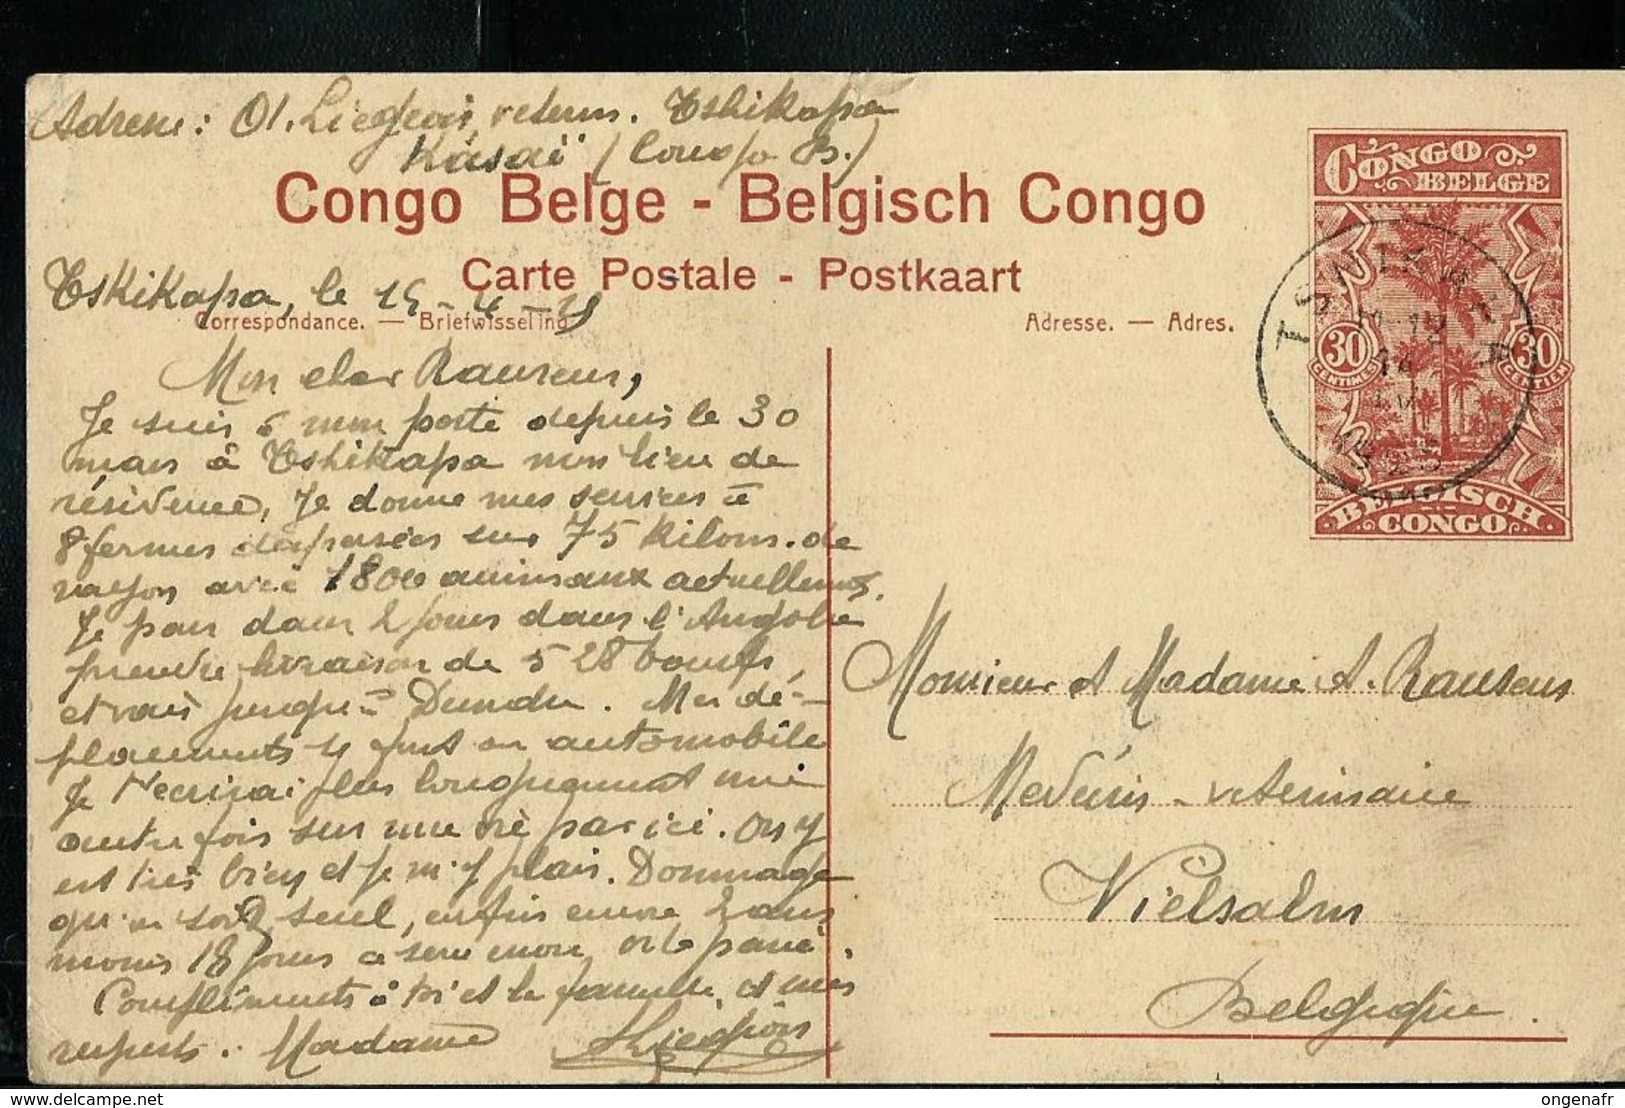 Adresse: Ol. Liegeois, veterin. Tshikapa
Kasaï (Congo B.)
Congo Belge - Belgisch Congo
Carte Postale - Postkaart
Tshikapa, le 15-4-25
Correspondance. — Briefwisseling
Adresse. — Adres.
CONGO BELGE
30 CENTIMES
30 CENTIEN
BELGISCH CONGO
TSHIKAPA
Mon cher Rauseus,
Je suis à mon poste depuis le 30
mars à Tshikapa mon lieu de
résidence, Je donne mes services à
8 fermes dispersées sur 75 kilom. de
rayon avec 1800 animaux actuellement.
Je pars dans 2 jours dans l'Angola
prendre livraison de 528 boeufs,
et vais jusqu'à Dundu. Mes dé-
placements se font en automobile
Je t'écrirai plus longuement une
autre fois sur ma vie par ici. On y
est très bien et je m'y plais. Dommage
qu'on soit seul, enfin encore 2 ans
moins 18 jours et ce sera passé.
Compliments à toi et la famille, et mes
respects. Madame
Liegeois
Monsieur et Madame A. Rauseus
Medecin-veterinaire
Vielsalm
Belgique.
delcampe.net
ongenafr